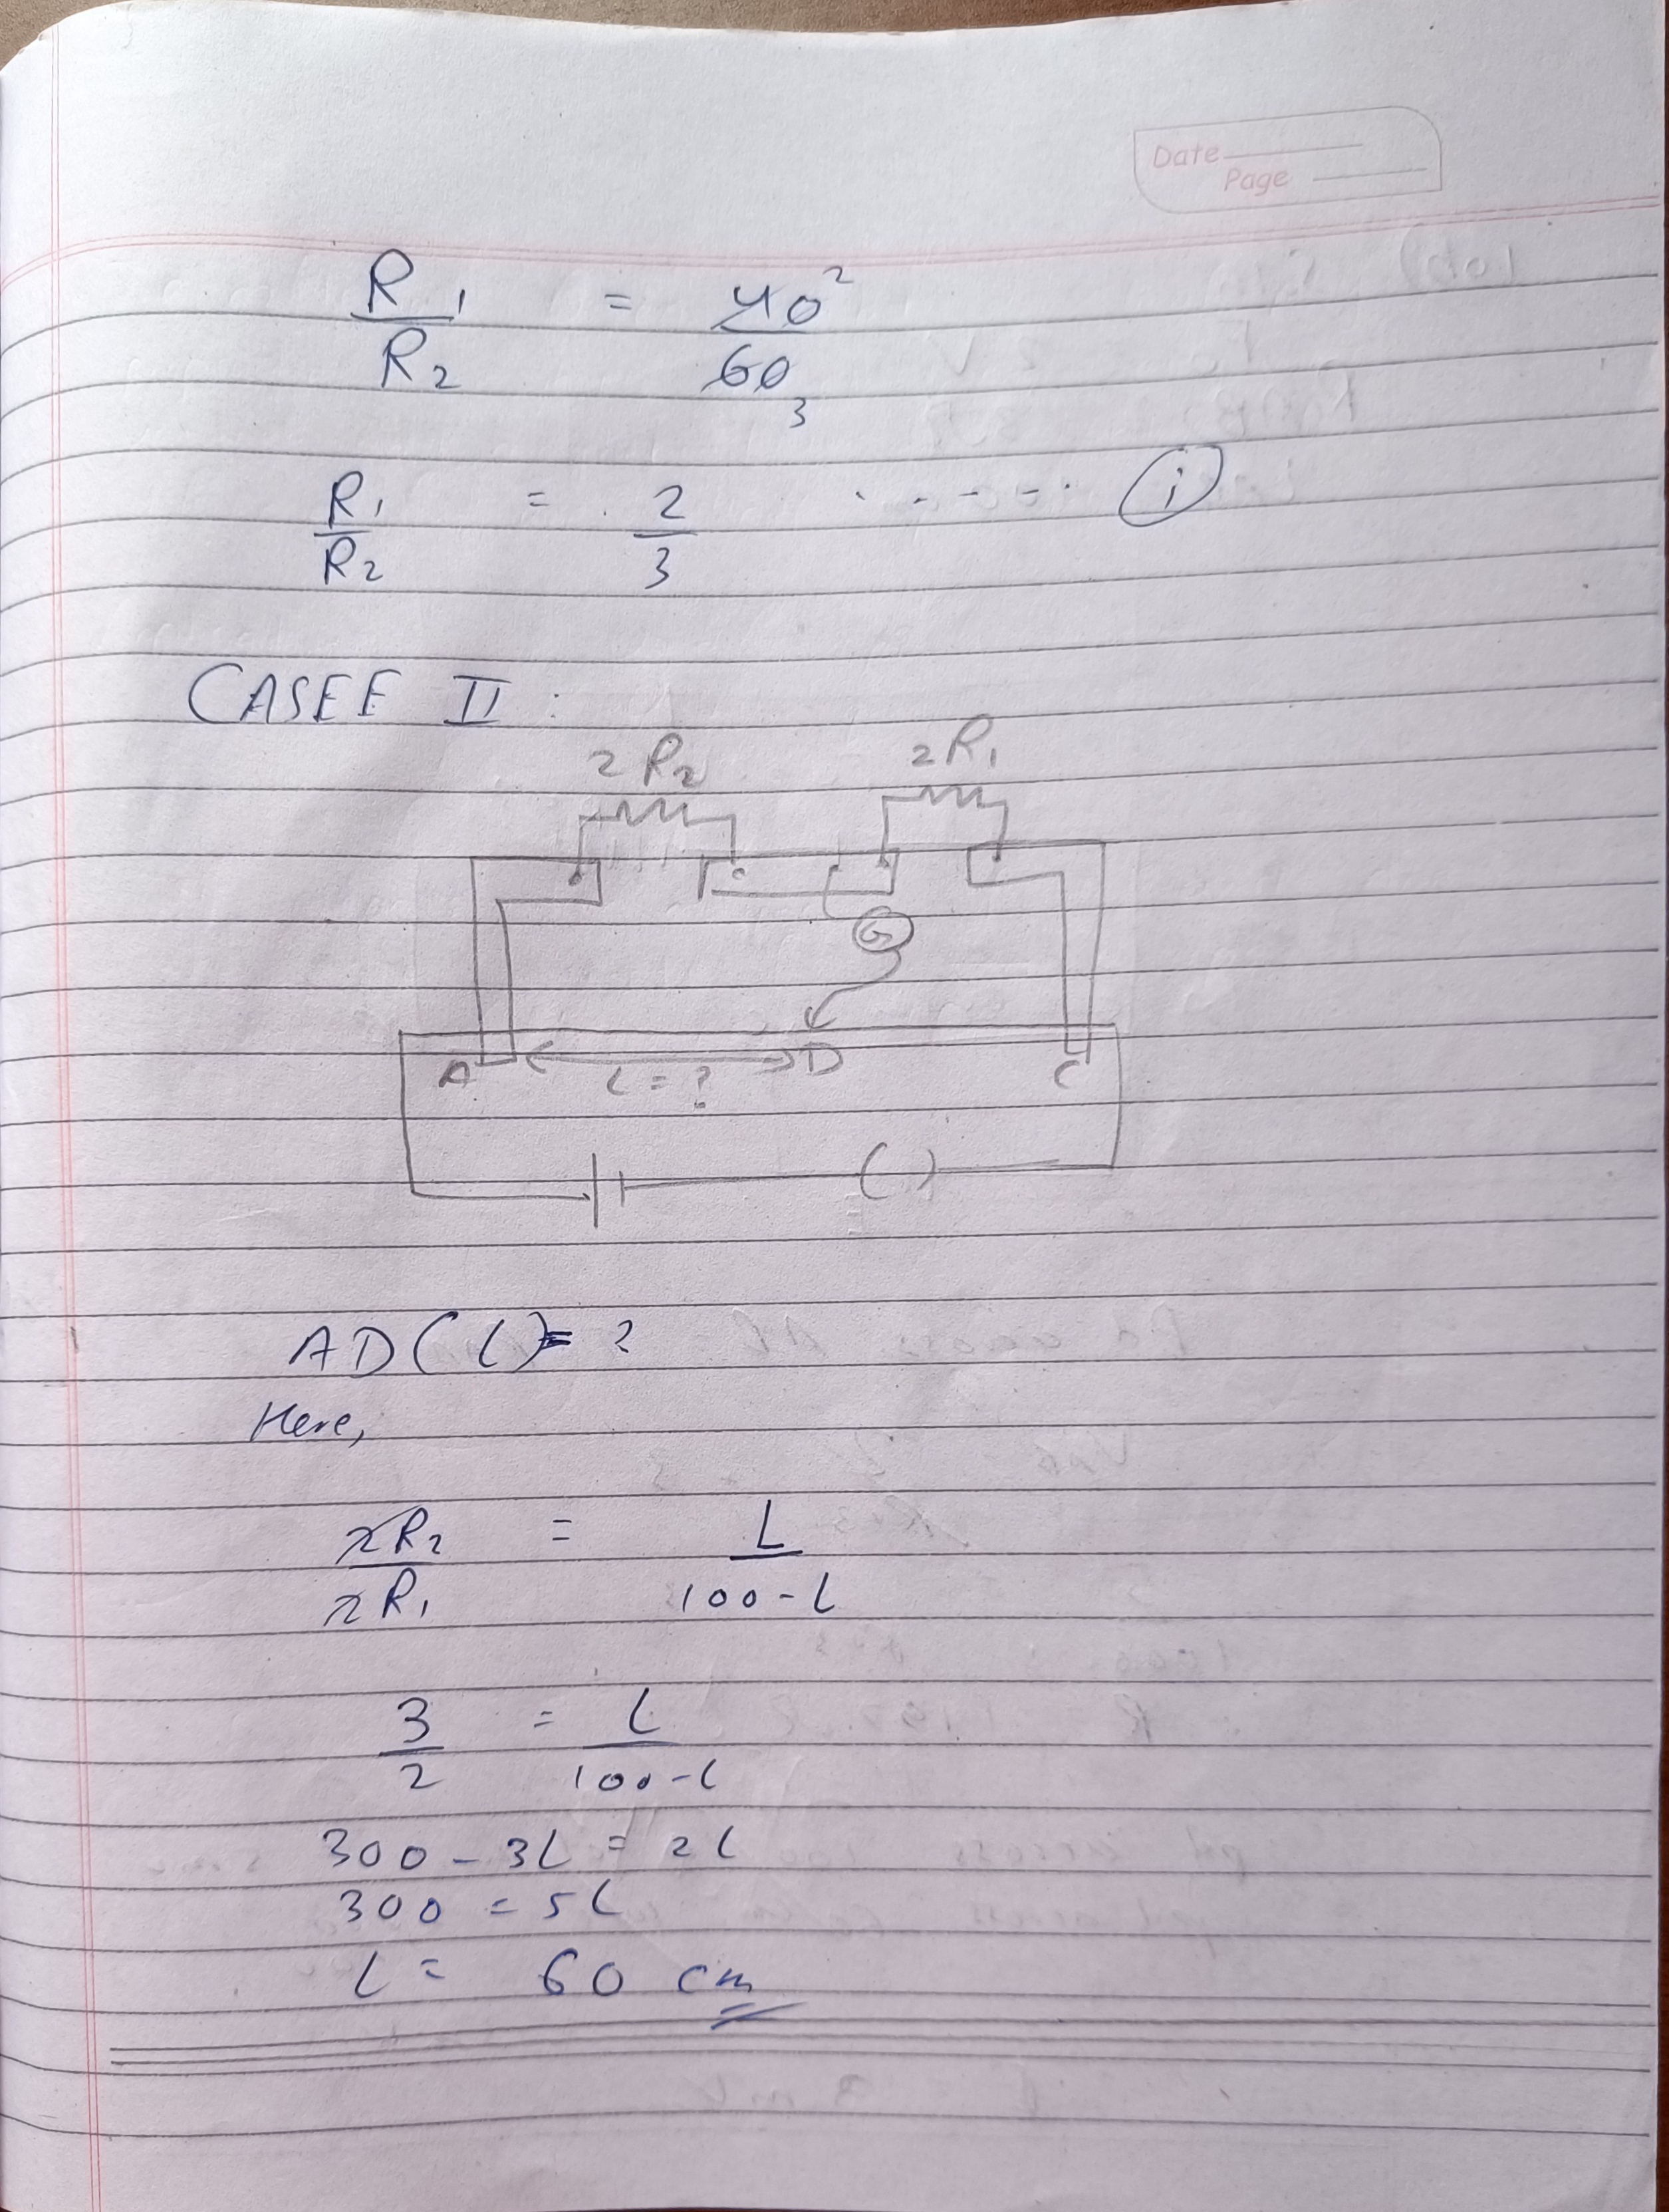 Date
Page
R1/R2 = 40 2/60 3
R1/R2 = 2/3 ..... (i)
CASEE II :
2R2 2R1
G
A L = ? D C
( )
AD(L) = ?
Here,
2R2/2R1 = L/100-L
3/2 = L/100-L
300 - 3L = 2L
300 = 5L
L = 60 cm